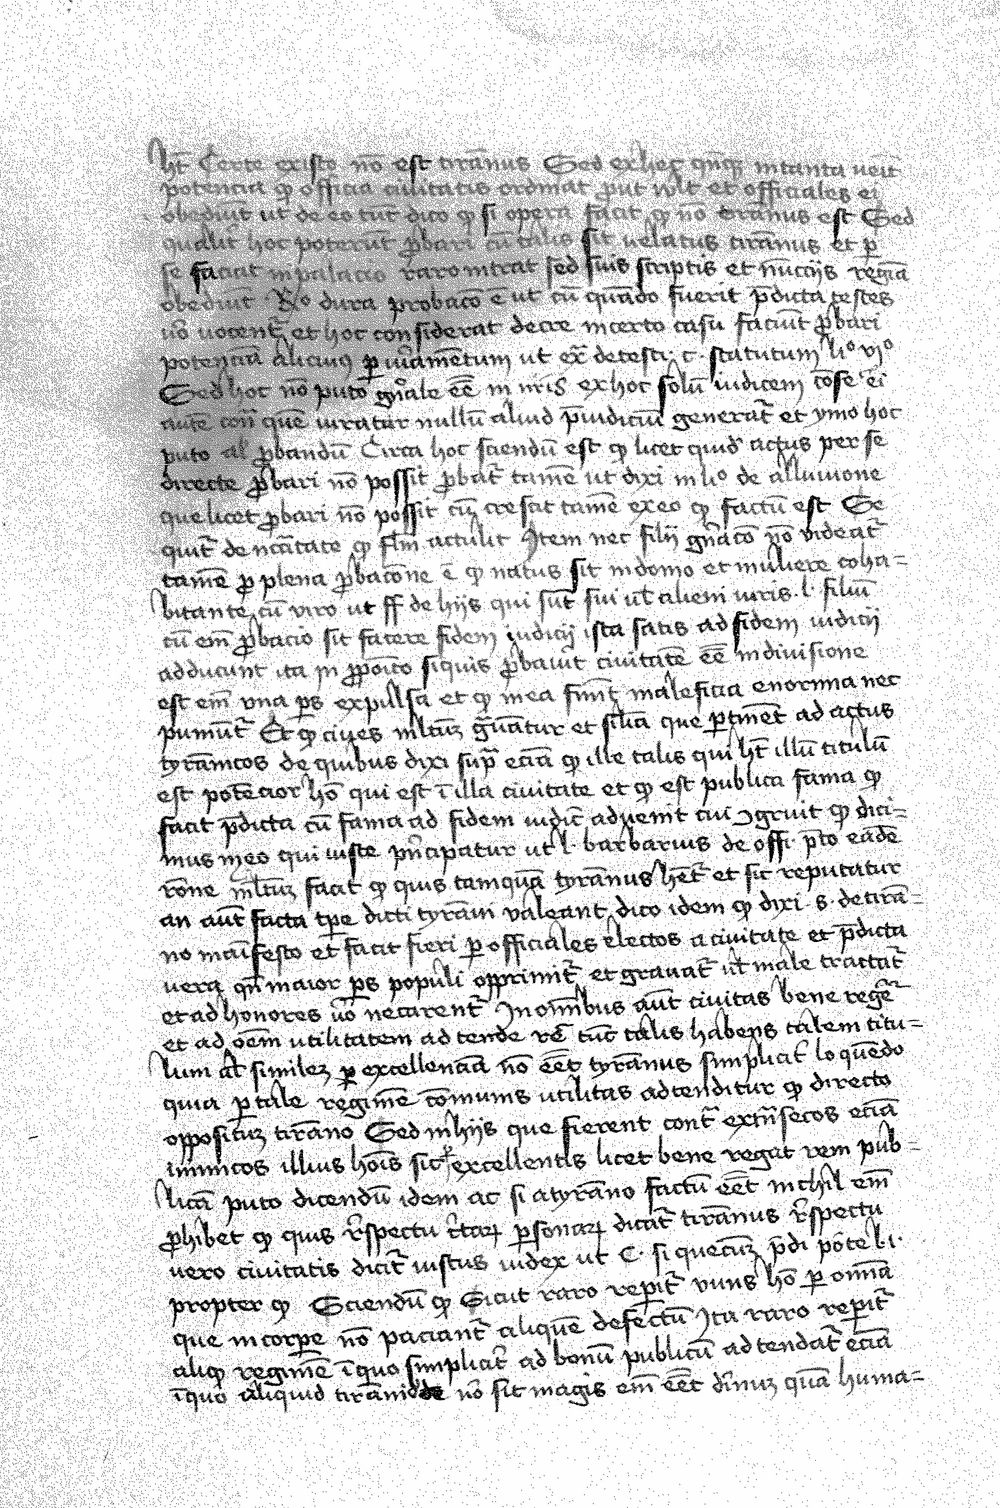 ht̄ Certe existo nō est tirānus Sed ex hec qn̄q̢ in tanta ueīt
potencia qp officia ciuitatis ordinat prout wlt et officiales ei
obediūt ut de eo tūc dico qp si opera facit qp nō tiranus est Sed
qualit̄ hoc poterūt p̄bari cū talis sit uelatus tirānus et p
se faciat in palacio raro intrat sed suis scriptis et nūcijs regia
obediūt Rᵒ dura probacō ē ut cū quādo fuerit p̄dicta testes
uō uocent̄ et hoc considerat decre in certo casu faciūt p̄bari
potenciā alicuiꝰ p iurāmentum ut ex̄ de testi. c. statutum liᵒ vjᵒ
Sed hoc nō puto gn̄ale eē in iur̄ ex hoc solū iudicem cōse ei
aūte quē iuratur nullū aliud p̄iudiciū generat̄ et ymo hoc
puto al' p̄bandū Circa hoc sciendū est qp licet quid' actus per se
directe p̄bari nō possit p̄bat̄ tamē ut dixi in lᵒ de alluuione
que licet p̄bari nō possit cuȝ crescat tamē ex eo qp factū est Se
quit̄ de nc̄citate qp fl̄m actulit Item nec filij gn̄acō nō videat̄
tamē p plena p̄bacōne ē qp natus sit in domo et muliere coha=
bitante cū viro ut ff de hijs qui sūt sui ul' alieni iuris. l. filiū
cū em̄ p̄bacio sit facere fidem iudicij ista satis ad fidem iudicij
adducunt ita in p̄poīto siquis p̄bauīt ciuitatē eē in diuisione
est em̄ vna ps̄ expulsa et qp in ea fiūt maleficia enormia nec
pumūt̄ Et qp ciues ml̄tuȝ grauātur et sil̄ia que ptinēt ad actus
tyrāmcos de quibus dixi sup̄ eciā qp ille talis qui ht̄ illū titulū
est potēcior hō qui est ī illa ciuitate et qp est publica fama qp
facit p̄dicta cū fama ad fidem iudic̄ adueīt cui ꝯgruit qp dici=
mus in eo qui iuste prīcipatur ut l. barbarius de offi. p̄to eadē
rōne ml̄tuȝ facit qp quis tamquā tyrānus het̄ et sic reputatur
an aūt facta tp̄e dicti tyrāni valeant dico idem qp dixi. s. de tirā=
no maīfesto et facit fieri p officiales electos a ciuitate et p̄dicta
vera qn̄ maior ps̄ populi opprimit̄ et grauat̄ ul' male tractat̄
et ad honores uō necarent̄ In om̄ibus aūt ciuitas bene reget̄
et ad oēm utilitatem ad tende rē tūc talis habens talem titu=
lum al' similez p excellenciā nō eēt tyrānus simplicit̄ loquēdo
quia p tale regimē cōmunis utilitas adtenditur qp directo
oppositȝ tirāno Sed in hijs que fierent cont̄ extr̄isecos eciā
inimicos illius hoīs sic excellentis licet bene regat rem pub=
licā puto dicendū idem ac si a tyrāno factū eēt nichil em̄
p̄hibet qp quis r̄spectu c̄taꝝ p̄sonaꝝ dicat̄ tirānus r̄spectu
uero ciuitatis dicit̄ iustus iudex ut C. si quecūȝ p̄di pōte l. i.
propter qp Sciendū qp Sicut raro repit̄ vnus hō p omnia
que in corpe nō paciant̄ aliquē defectū Ita raro repit̄
aliqp regimē ī quo simplicit̄ ad bonū publicū ad tendat̄ eciā
ī quo aliquid tirānidde nō sit magis em̄ eēt diuinuȝ quā huma=